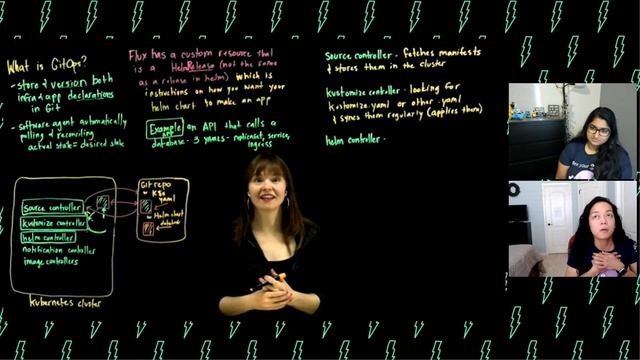 What is GitOps?
- store & version both
infra & app declarations
in Git
- software agent automatically
pulling & reconciling
actual state = desired state
Flux has a custom resource that
is a HelmRelease (not the same
as a release in helm) which is
instructions on how you want your
helm chart to make an app
Example an API that calls a
database - 3 yamls -
service,
ingress
Source controller - fetches manifests
& stores them in the cluster
Kustomize controller - looking for
kustomize.yaml or other .yaml
& syncs them regularly (applies them)
helm controller -
source controller
kustomize controller
helm controller
notification controller
image controllers
kubernetes cluster
Git repo
K8s
yaml
Helm chart